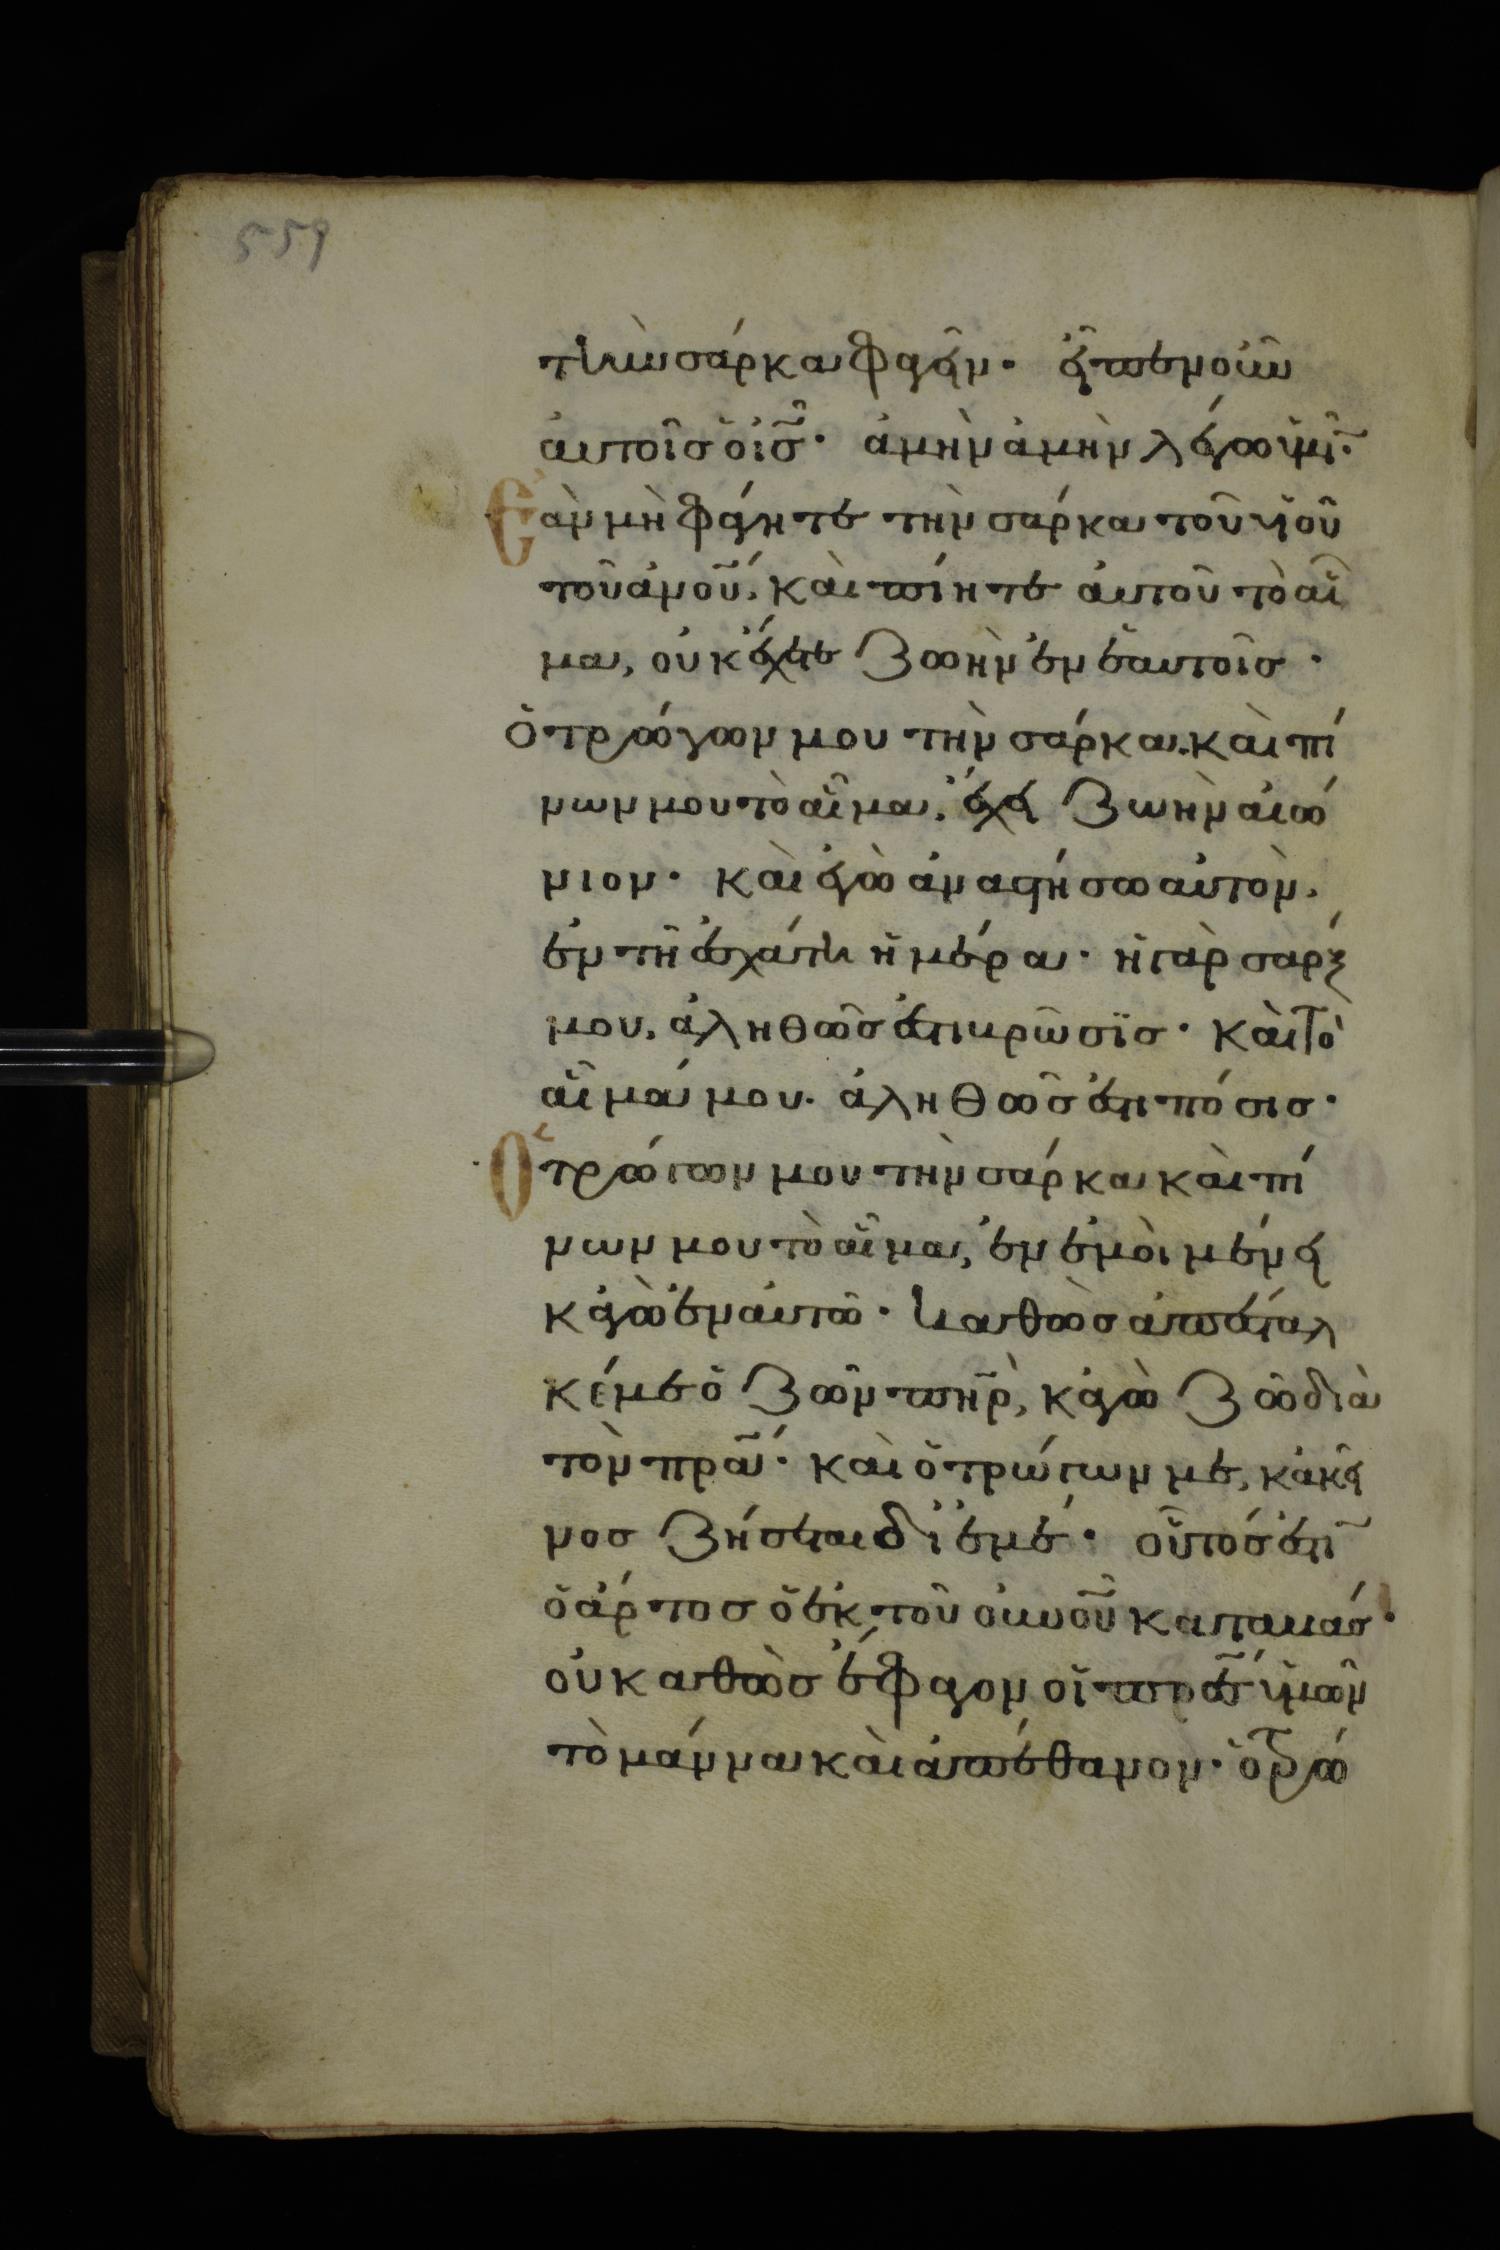 559
τὴν σάρκα φαγεῖν· εἶπεν οὖν
αὐτοῖς ὁ ἰ̅ς̅· ἀμὴν ἀμὴν λέγω ὑμῖ̅·
Ἐὰν μὴ φάγητε τὴν σάρκα τοῦ υἱοῦ
τοῦ α̅ν̅ο̅υ̅, καὶ πίητε αὐτοῦ τὸ αἷ
μα, οὐκ ἔχετε ζωὴν ἐν ἑαυτοῖς·
ὁ τρώγων μου τὴν σάρκα. καὶ πί
νων μου τὸ αἷμα, ἔχει ζωὴν αἰώ
νιον· καὶ ἐγὼ ἀναστήσω αὐτὸν,
ἐν τῆ ἐσχάτη ἡμέρα· ἡ γὰρ σάρξ
μου, ἀληθῶς ἐστι βρῶσϊς· καὶ τὸ
αἷμά μου. ἀληθῶς ἐστι πόσις·
Ὁ τρώγων μου τὴν σάρκα καὶ πί
νων μου τὸ αἷμα, ἐν ἐμοὶ μένει
κἀγὼ ἐν αὐτῶ· καθὼς ἀπέσταλ
κέ με ὁ ζῶν π̅η̅ρ̅, κἀγὼ ζῶ διὰ
τὸν π̅ρ̅α̅· καὶ ὁ τρώγων με, κἀκεῖ
νος ζήσεται δι ἐμέ· οὗτός ἐστι̅
ὁ ἄρτος ὁ ἐκ τοῦ ο̅υ̅ν̅ο̅υ̅ καταβάς·
οὐ καθὼς ἔφαγον οἱ π̅ρ̅ε̅ς̅ ὑμῶν
τὸ μάννα καὶ ἀπέθανον· ὁ τρώ